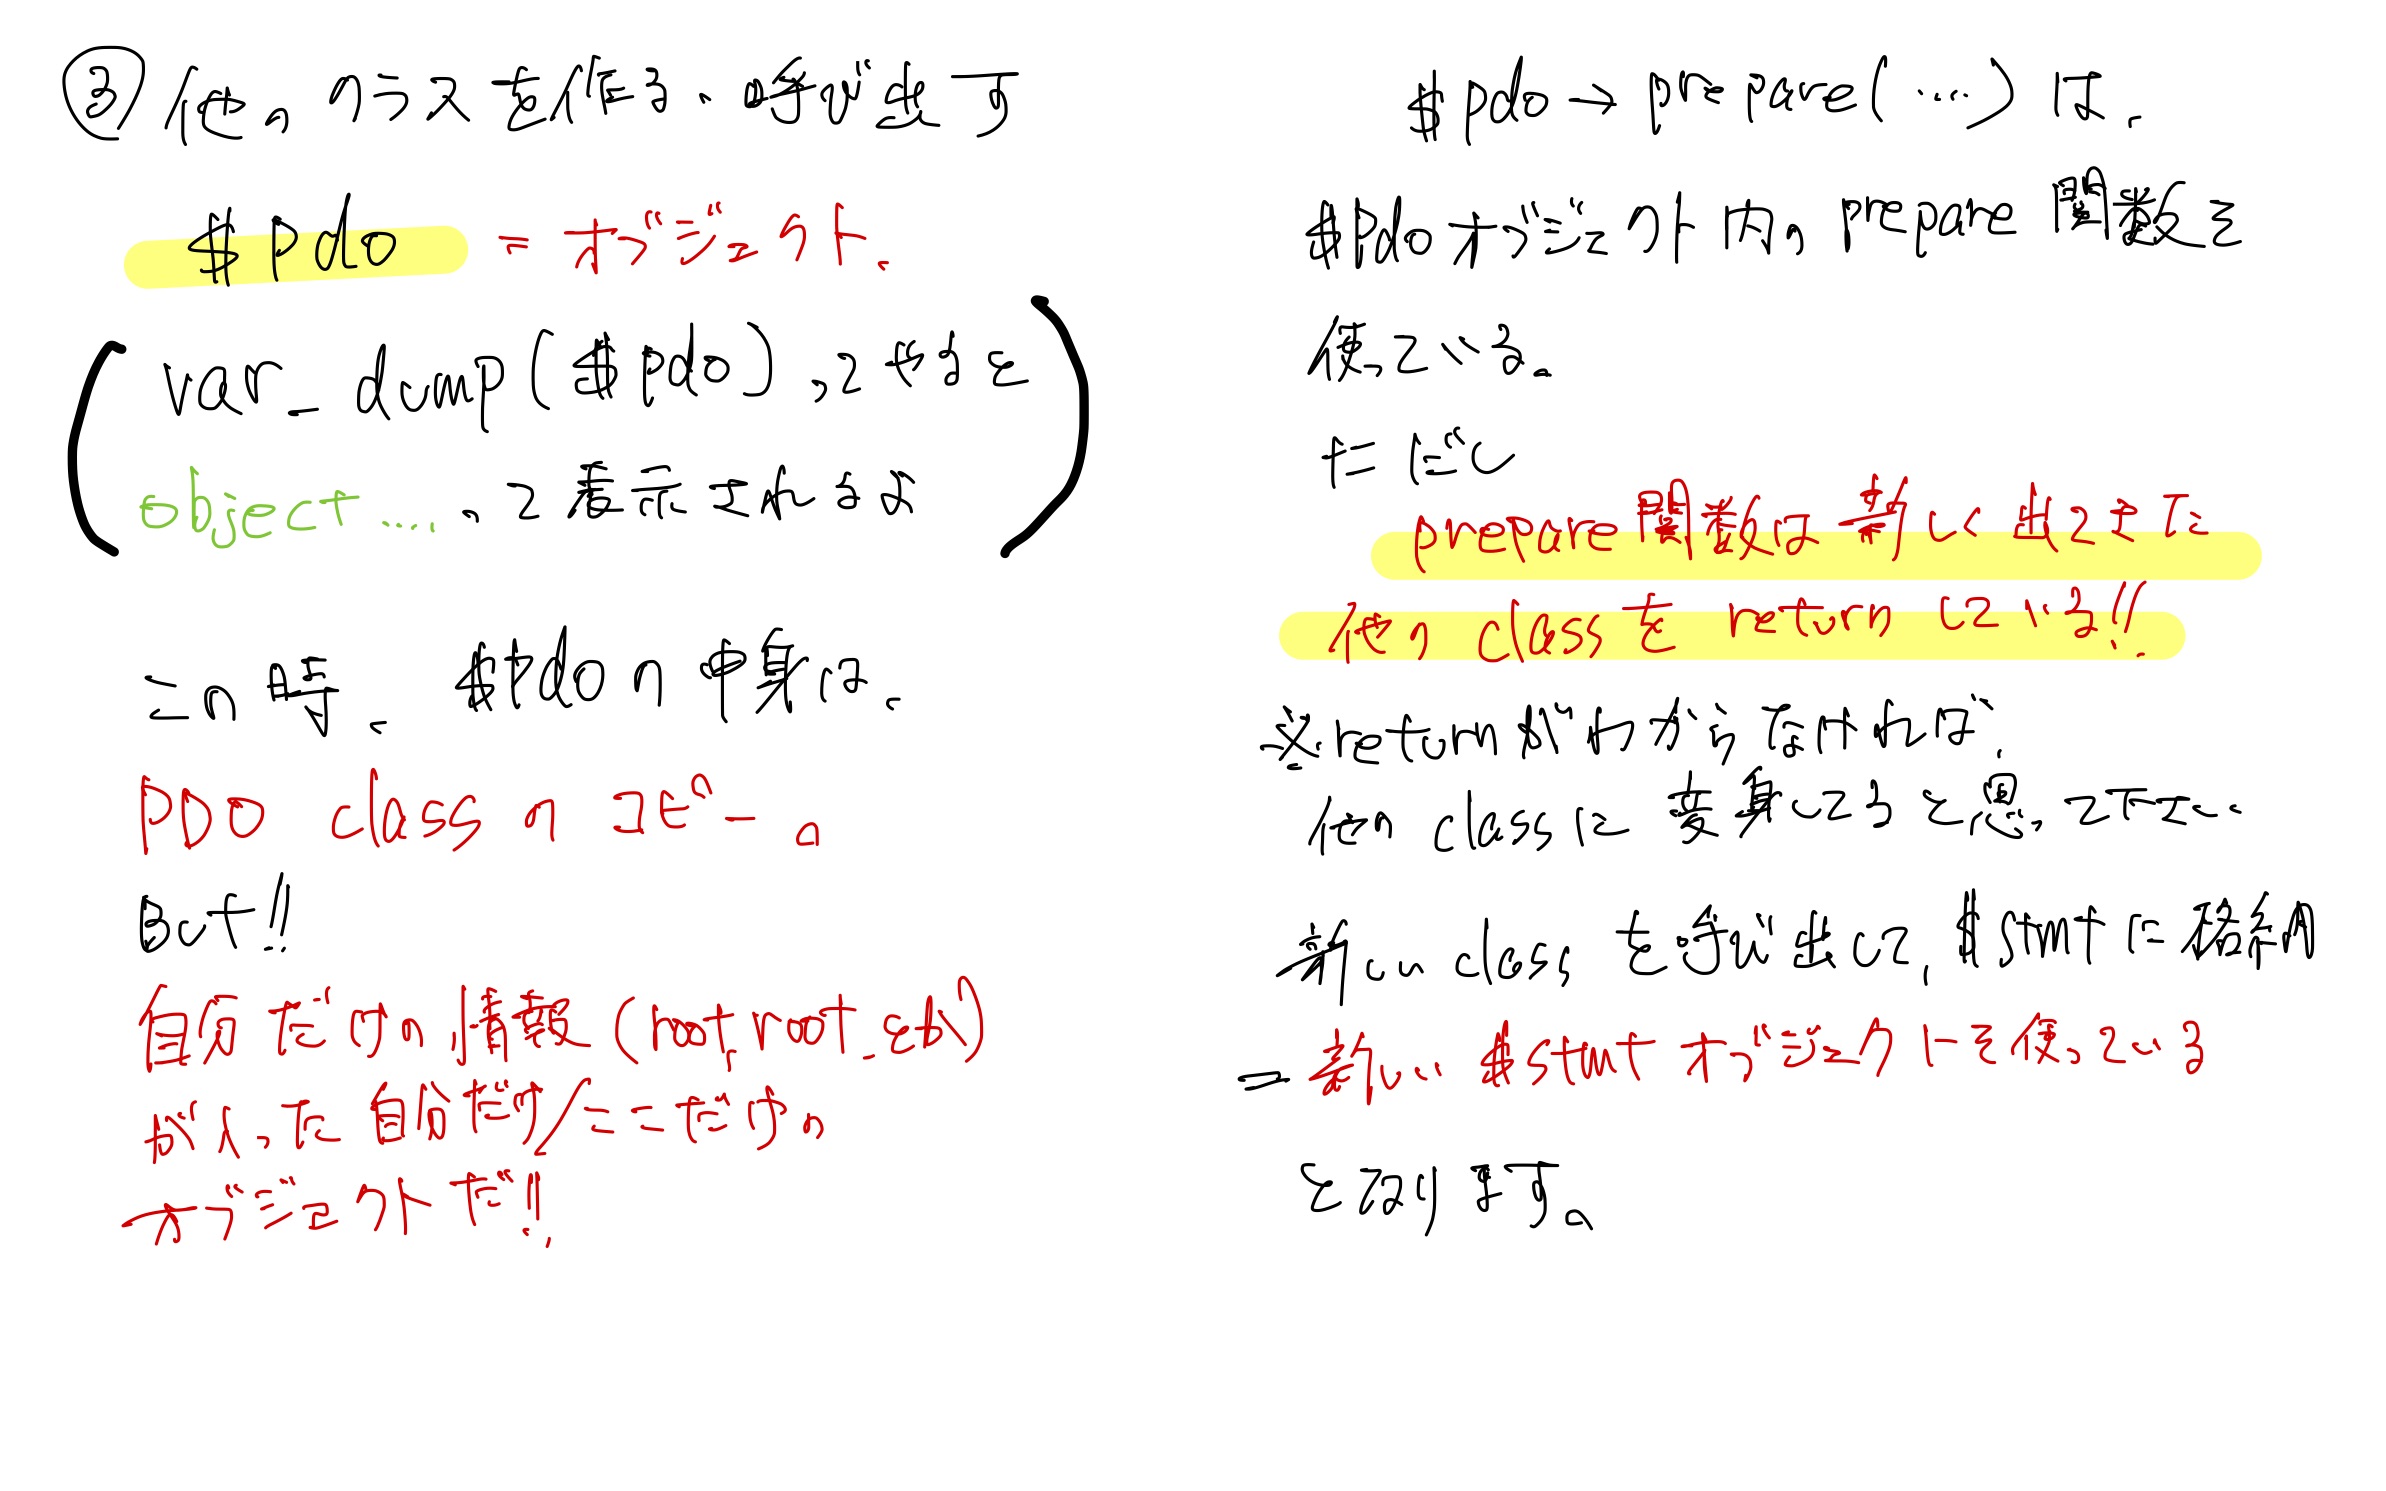 ③ 他のクラスを作る、呼び出す
$pdo = オブジェクト、
var_dump($pdo)ってやると
object.....って表示されるよ
この時、$PDOの中身は、
PDO classのコピー。
But!!
自分だけの情報(root,root,db)
が入った自分だけ/ここだけの
オブジェクトだ!!
$pdo→prepare(.....)は、
$Pdoオブジェクト内のprepare関数を
使っている。
ただし
prepare関数は新しく出てきた
他のclassをreturnしている!!
※returnがわからなければ、
他のclassに変身してると思って下さい
新しいclassを呼び出して、$stmtに格納
=新しい$stmtオブジェクトを使っている
となります。